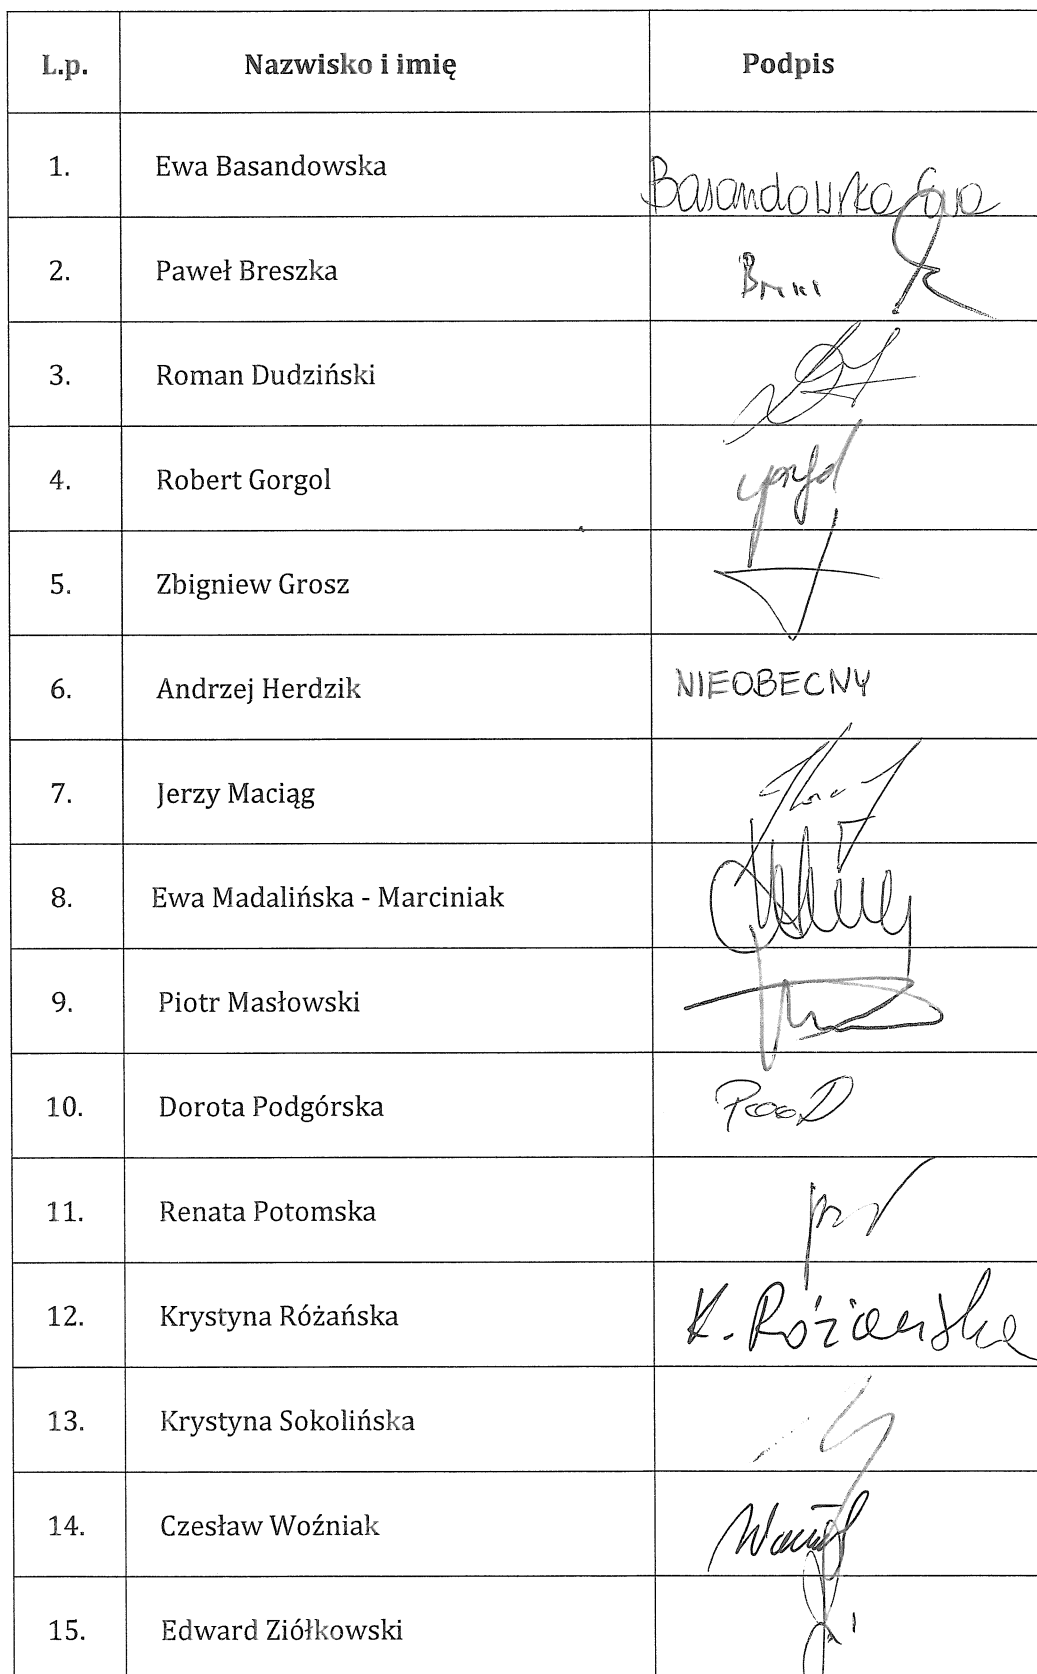 L.p. Nazwisko i imię Podpis
1. Ewa Basandowska Basandowska Ewa
2. Paweł Breszka
3. Roman Dudziński
4. Robert Gorgol
5. Zbigniew Grosz
6. Andrzej Herdzik NIEOBECNY
7. Jerzy Maciąg
8. Ewa Madalińska - Marciniak
9. Piotr Masłowski
10. Dorota Podgórska
11. Renata Potomska
12. Krystyna Różańska K. Różańska
13. Krystyna Sokolińska
14. Czesław Woźniak
15. Edward Ziółkowski